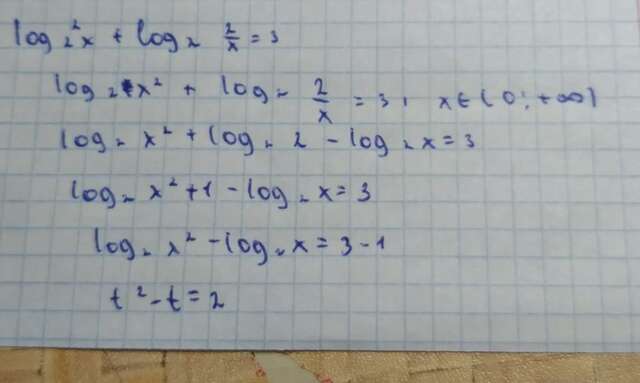 log₂²x + log₂ 2/x = 3
log₂ x² + log₂ 2/x = 3, x ∈ (0; +∞)
log₂ x² + log₂ 2 - log₂ x = 3
log₂ x² + 1 - log₂ x = 3
log₂ x² - log₂ x = 3 - 1
t² - t = 2